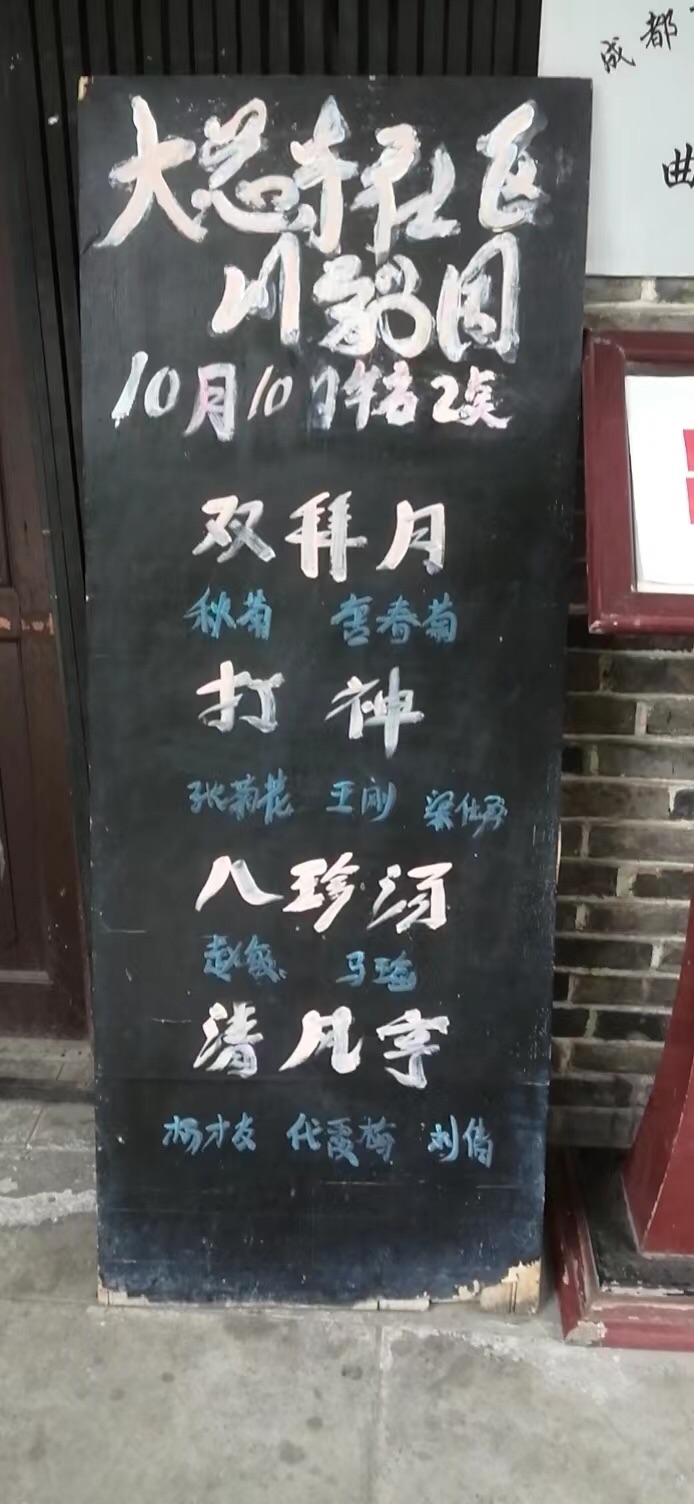 成都
曲
大慈寺社区
川剧团
10月10日午后2点
双拜月
秋菊 春菊
打神
张菊花 王刚 梁仕
八珍汤
赵 马瑜
清风亭
杨才友 代夏梅 刘